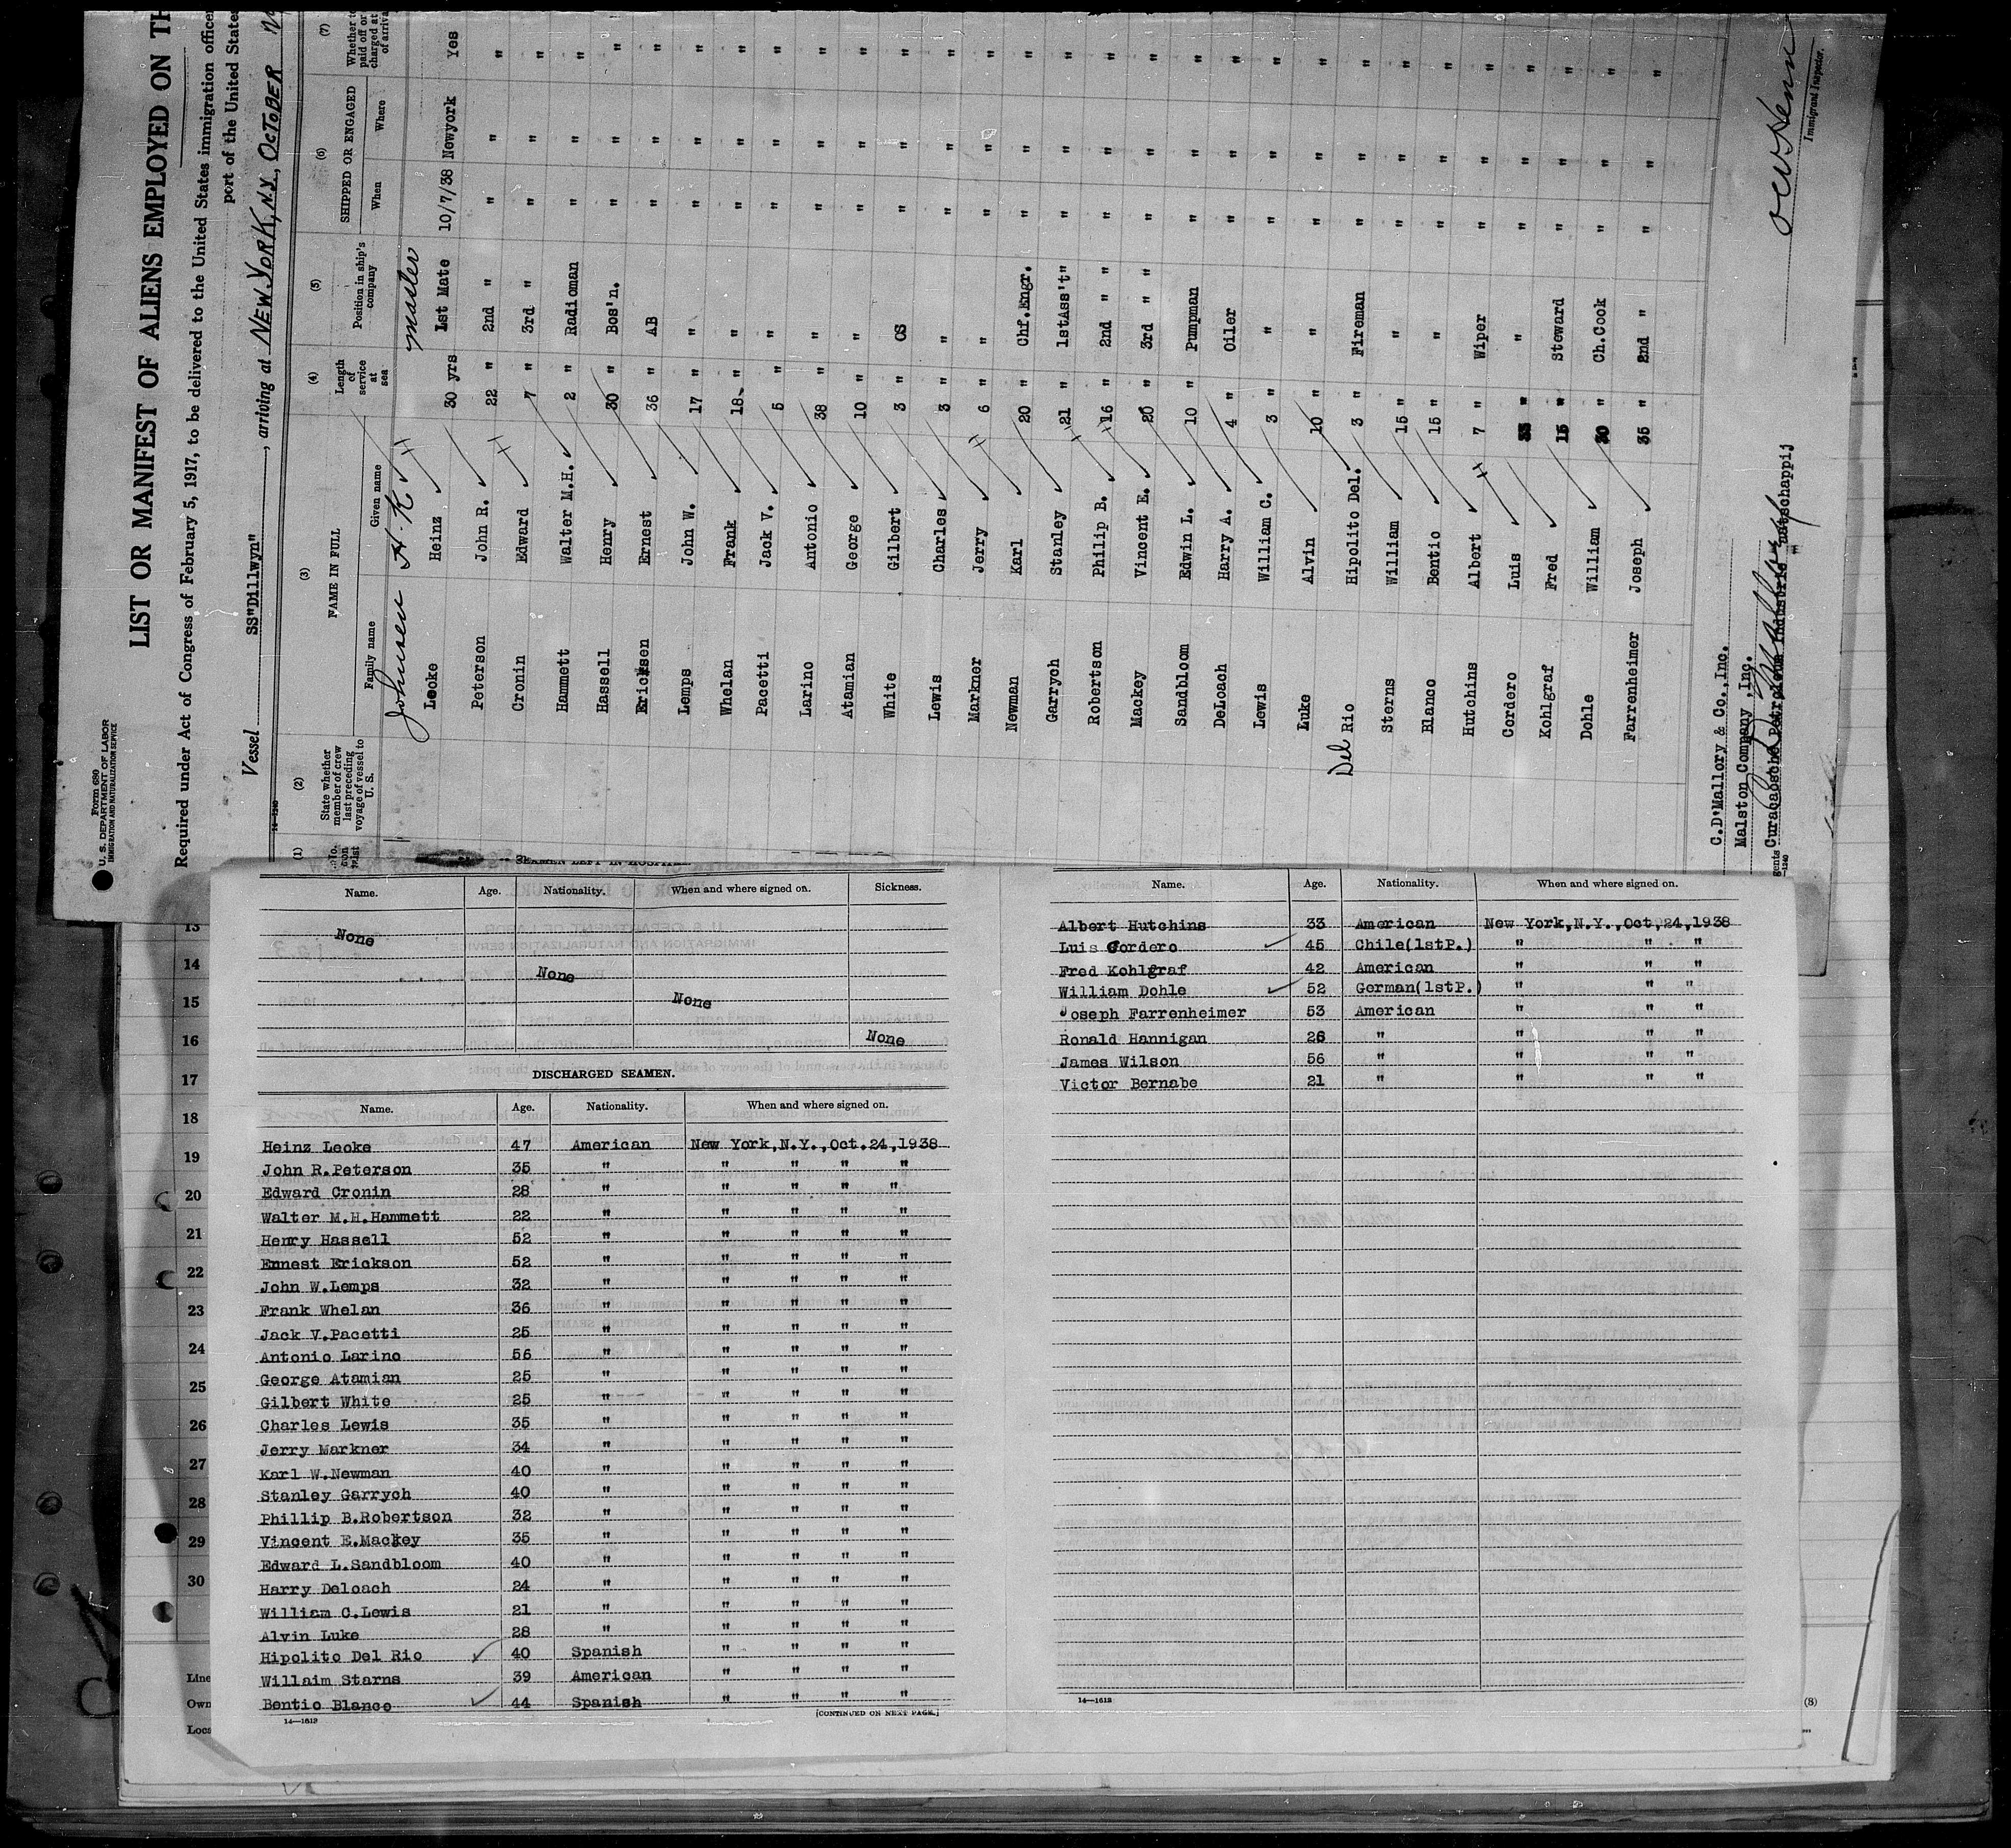 Form 680
U. S. DEPARTMENT OF LABOR
IMMIGRATION AND NATURALIZATION SERVICE
LIST OR MANIFEST OF ALIENS EMPLOYED ON TH
Required under Act of Congress of February 5, 1917, to be delivered to the United States immigration office
port of the United State
Vessel SS"Dillwyn" , arriving at NEW YORK, N.Y., OCTOBER
14—1240
(1) (2) (3) (4) (5) (6) (7)
No. on list State whether member of crew last preceding voyage of vessel to U. S. FAME IN FULL Length of service at sea Position in ship's company SHIPPED OR ENGAGED Whether to paid off or charged at of arriva
Family name Given name When Where
Johnsen H. K master
Leoke Heinz 30 yrs 1st Mate 10/7/38 Newyork Yes
Peterson John R. 22 " 2nd " " " "
Cronin Edward 7 " 3rd " " " "
Hammett Walter M.H. 2 " Radioman " " "
Hassell Henry 30 " Bos'n. " " "
Ericksen Ernest 36 " AB " " "
Lemps John W. 17 " " " " "
Whelan Frank 18 " " " " "
Pacetti Jack V. 5 " " " " "
Larino Antonio 38 " " " " "
Atamian George 10 " " " " "
White Gilbert 3 " OS " " "
Lewis Charles 3 " " " " "
Markner Jerry 6 " " " " "
Newman Karl 20 " Chf.Engr. " " "
Garrych Stanley 21 " 1stAss't" " " "
Robertson Philip B. 16 " 2nd " " " " "
Mackey Vincent E. 20 " 3rd " " " " "
Sandbloom Edwin L. 10 " Pumpman " " "
DeLoach Harry A. 4 " Oiler " " "
Lewis William C. 3 " " " " "
Luke Alvin 10 " " " " "
Del Rio Hipolito Del. 3 " Fireman " " "
Sterns William 15 " " " " "
Blanco Bentio 15 " " " " "
Hutchins Albert 7 " Wiper " " "
Cordero Luis 33 " " " " "
Kohlgraf Fred 15 " Steward " " "
Dohle William 20 " Ch.Cook " " "
Farrenheimer Joseph 35 " 2nd " " " "
C.D'Mallory & Co.,Inc.
Malston Company ,Inc.
gents Curacaosche Petroleum Industrie Maatschappij
Immigrant Inspector.
SEAMEN LEFT IN HOSPITAL
Name. Age. Nationality. When and where signed on. Sickness.
None
None
None
None
DISCHARGED SEAMEN.
Name. Age. Nationality. When and where signed on.
Heinz Leoke 47 American New York,N.Y.,Oct.24,1938
John R.Peterson 35 " " " " "
Edward Cronin 28 " " " " "
Walter M.H.Hammett 22 " " " " "
Henry Hassell 52 " " " " "
Ernest Erickson 52 " " " " "
John W.Lemps 32 " " " " "
Frank Whelan 36 " " " " "
Jack V.Pacetti 25 " " " " "
Antonio Larino 56 " " " " "
George Atamian 25 " " " " "
Gilbert White 25 " " " " "
Charles Lewis 35 " " " " "
Jerry Markner 34 " " " " "
Karl W.Newman 40 " " " " "
Stanley Garrych 40 " " " " "
Phillip B.Robertson 32 " " " " "
Vincent E.Mackey 35 " " " " "
Edward L.Sandbloom 40 " " " " "
Harry Deloach 24 " " " " "
William C.Lewis 21 " " " " "
Alvin Luke 28 " " " " "
Hipolito Del Rio 40 Spanish " " " "
Willaim Starns 39 American " " " "
Bentio Blanco 44 Spanish " " " "
14—1612
[CONTINUED ON NEXT PAGE.]
Name. Age. Nationality. When and where signed on.
Albert Hutchins 33 American New York,N.Y.,Oct,24,1938
Luis Cordero 45 Chile(1stP.) " " "
Fred Kohlgraf 42 American " " "
William Dohle 52 German(1stP.) " " "
Joseph Farrenheimer 53 American " " "
Ronald Hannigan 26 " " " "
James Wilson 56 " " " "
Victor Bernabe 21 " " " "
14—1612
13
14
15
16
17
18
19
20
21
22
23
24
25
26
27
28
29
30
Line
Own
Loca
(8)